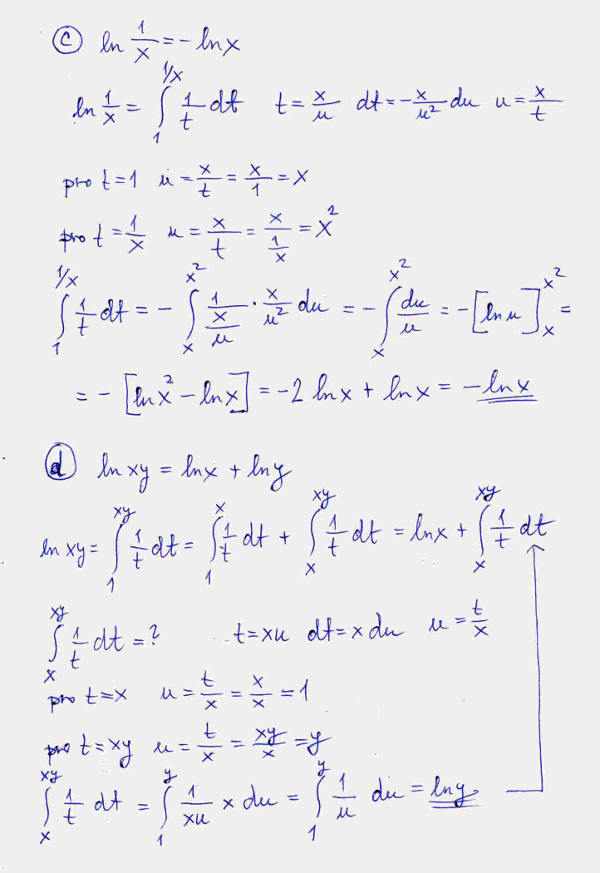 ⓒ ln 1/x = - ln x
ln 1/x = ∫₁^(1/x) 1/t dt   t = x/u   dt = - x/u² du   u = x/t
pro t=1   u = x/t = x/1 = x
pro t = 1/x   u = x/t = x/(1/x) = x²
∫₁^(1/x) 1/t dt = - ∫ₓ^(x²) 1/(x/u) · x/u² du = - ∫ₓ^(x²) du/u = - [ln u]ₓ^(x²) =
= - [ln x² - ln x] = -2 ln x + ln x = - ln x
ⓓ ln xy = ln x + ln y
ln xy = ∫₁^(xy) 1/t dt = ∫₁^x 1/t dt + ∫ₓ^(xy) 1/t dt = ln x + ∫ₓ^(xy) 1/t dt
∫ₓ^(xy) 1/t dt = ?   t = xu   dt = x du   u = t/x
pro t=x   u = t/x = x/x = 1
pro t=xy   u = t/x = xy/x = y
∫ₓ^(xy) 1/t dt = ∫₁^y 1/(xu) x du = ∫₁^y 1/u du = ln y